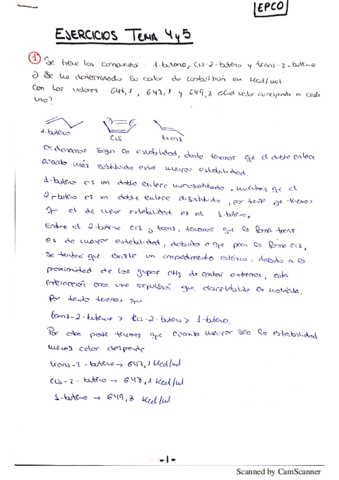 EPCO
EJERCICIOS TEMA 4 y 5
① Se tiene los compuestos: 1-buteno, cis-2-buteno y trans-2-buteno
Se ha determinado su calor de combustión en Kcal/mol
con los valores 647,1, 647,1 y 649,8 ¿Qué valor corresponde a cada
uno?
1-buteno
cis
trans
Ordenamos según la estabilidad, donde tenemos que el doble enlace
cuanto más sustituido esté mayor estabilidad.
1-buteno es un doble enlace monosustituido, mientras que el
2-buteno es un doble enlace disustituido, por tanto tenemos
que el de menor estabilidad es el 1-buteno.
Entre el 2-buteno cis y trans, tenemos que la forma trans
es de mayor estabilidad, debido a que para la forma cis,
se tendrá que existe un impedimento estérico, debido a la
proximidad de los grupos CH3 de ambos extremos, esta
interacción crea una repulsión que desestabiliza la molécula.
Por tanto tenemos que
trans-2-buteno > Cis-2-buteno > 1-buteno.
Por otra parte tenemos que cuanto mayor sea la estabilidad
menos calor desprende
trans-2-buteno → 647,1 Kcal/mol
cis-2-buteno → 647,1 Kcal/mol
1-buteno → 649,8 Kcal/mol
-1-
Scanned by CamScanner